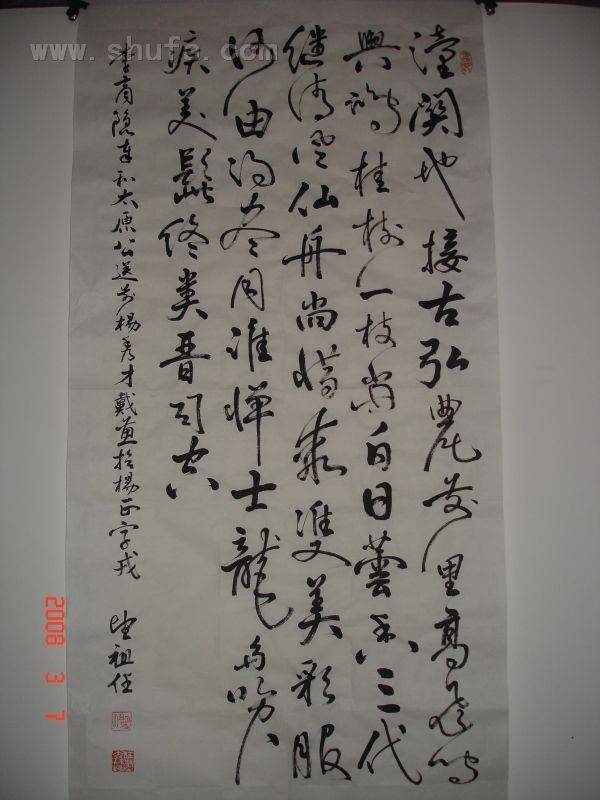 潼関地接古弘農萬里高飛鴈
與鴻桂樹一枝當白日蕓香三代
继清風仙舟尚惜乖雙美彩服
何由得盡同誰惮士龍多笑
疾美髭終類晋司空
李商隐奉和太原公送前楊秀才戴兼招楊正字戎
祖任
www.shufa.com
2008 3 7